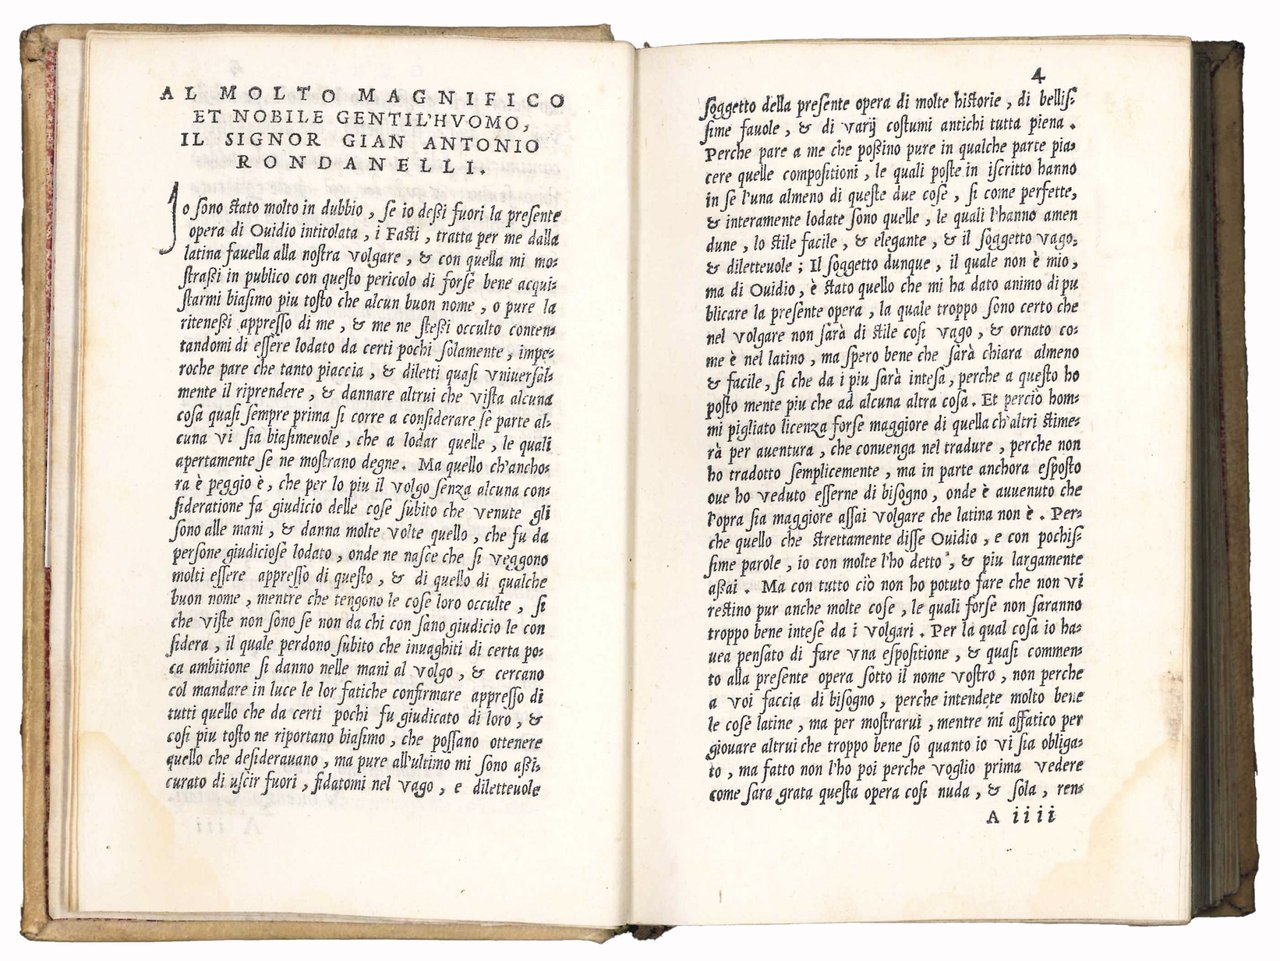 AL MOLTO MAGNIFICO
ET NOBILE GENTIL'HVOMO,
IL SIGNOR GIAN ANTONIO
RONDANELLI.
Jo sono stato molto in dubbio, se io deßi fuori la presente
opera di Ouidio intitolata, i Fasti, tratta per me dalla
latina fauella alla nostra volgare, & con quella mi mo-
straßi in publico con questo pericolo di forse bene acqui-
starmi biasimo piu tosto che alcun buon nome, o pure la
riteneßi appresso di me, & me ne steßi occulto conten-
tandomi di essere lodato da certi pochi solamente, impe-
roche pare che tanto piaccia, & diletti quasi vniuersal-
mente il riprendere, & dannare altrui che vista alcuna
cosa quasi sempre prima si corre a considerare se parte al-
cuna vi sia biasimeuole, che a lodar quelle, le quali
apertamente se ne mostrano degne. Ma quello ch'ancho-
ra è peggio è, che per lo piu il volgo senza alcuna con-
sideratione fa giudicio delle cose subito che venute gli
sono alle mani, & danna molte volte quello, che fu da
persone giudiciose lodato, onde ne nasce che si veggono
molti essere appresso di questo, & di quello di qualche
buon nome, mentre che tengono le cose loro occulte, si
che viste non sono se non da chi con sano giudicio le con
sidera, il quale perdono subito che inuaghiti di certa po-
ca ambitione si danno nelle mani al volgo, & cercano
col mandare in luce le lor fatiche confirmare appresso di
tutti quello che da certi pochi fu giudicato di loro, &
cosi piu tosto ne riportano biasimo, che possano ottenere
quello che desiderauano, ma pure all'ultimo mi sono aßi-
curato di uscir fuori, fidatomi nel vago, e diletteuole
4
soggetto della presente opera di molte historie, di bellis-
sime fauole, & di varij costumi antichi tutta piena.
Perche pare a me che poßino pure in qualche parte pia-
cere quelle compositioni, le quali poste in iscritto hanno
in se l'una almeno di queste due cose, si come perfette,
& interamente lodate sono quelle, le quali l'hanno amen
dune, lo stile facile, & elegante, & il soggetto vago,
& diletteuole; Il soggetto dunque, il quale non è mio,
ma di Ouidio, è stato quello che mi ha dato animo di pu
blicare la presente opera, la quale troppo sono certo che
nel volgare non sarà di stile cosi vago, & ornato co-
me è nel latino, ma spero bene che sarà chiara almeno
& facile, si che da i piu sarà intesa, perche a questo ho
posto mente piu che ad alcuna altra cosa. Et perciò hom-
mi pigliato licenza forse maggiore di quella ch'altri stime-
rà per auentura, che conuenga nel tradure, perche non
ho tradotto semplicemente, ma in parte anchora esposto
oue ho veduto esserne di bisogno, onde è auuenuto che
l'opra sia maggiore assai volgare che latina non è. Per-
che quello che strettamente disse Ouidio, e con pochis-
sime parole, io con molte l'ho detto, & piu largamente
aßai. Ma con tutto ciò non ho potuto fare che non vi
restino pur anche molte cose, le quali forse non saranno
troppo bene intese da i volgari. Per la qual cosa io ha-
uea pensato di fare vna espositione, & quasi commen-
to alla presente opera sotto il nome vostro, non perche
a voi faccia di bisogno, perche intendete molto bene
le cose latine, ma per mostrarui, mentre mi affatico per
giouare altrui che troppo bene sò quanto io vi sia obliga-
to, ma fatto non l'ho poi perche voglio prima vedere
come sara grata questa opera cosi nuda, & sola, ren-
A iiii